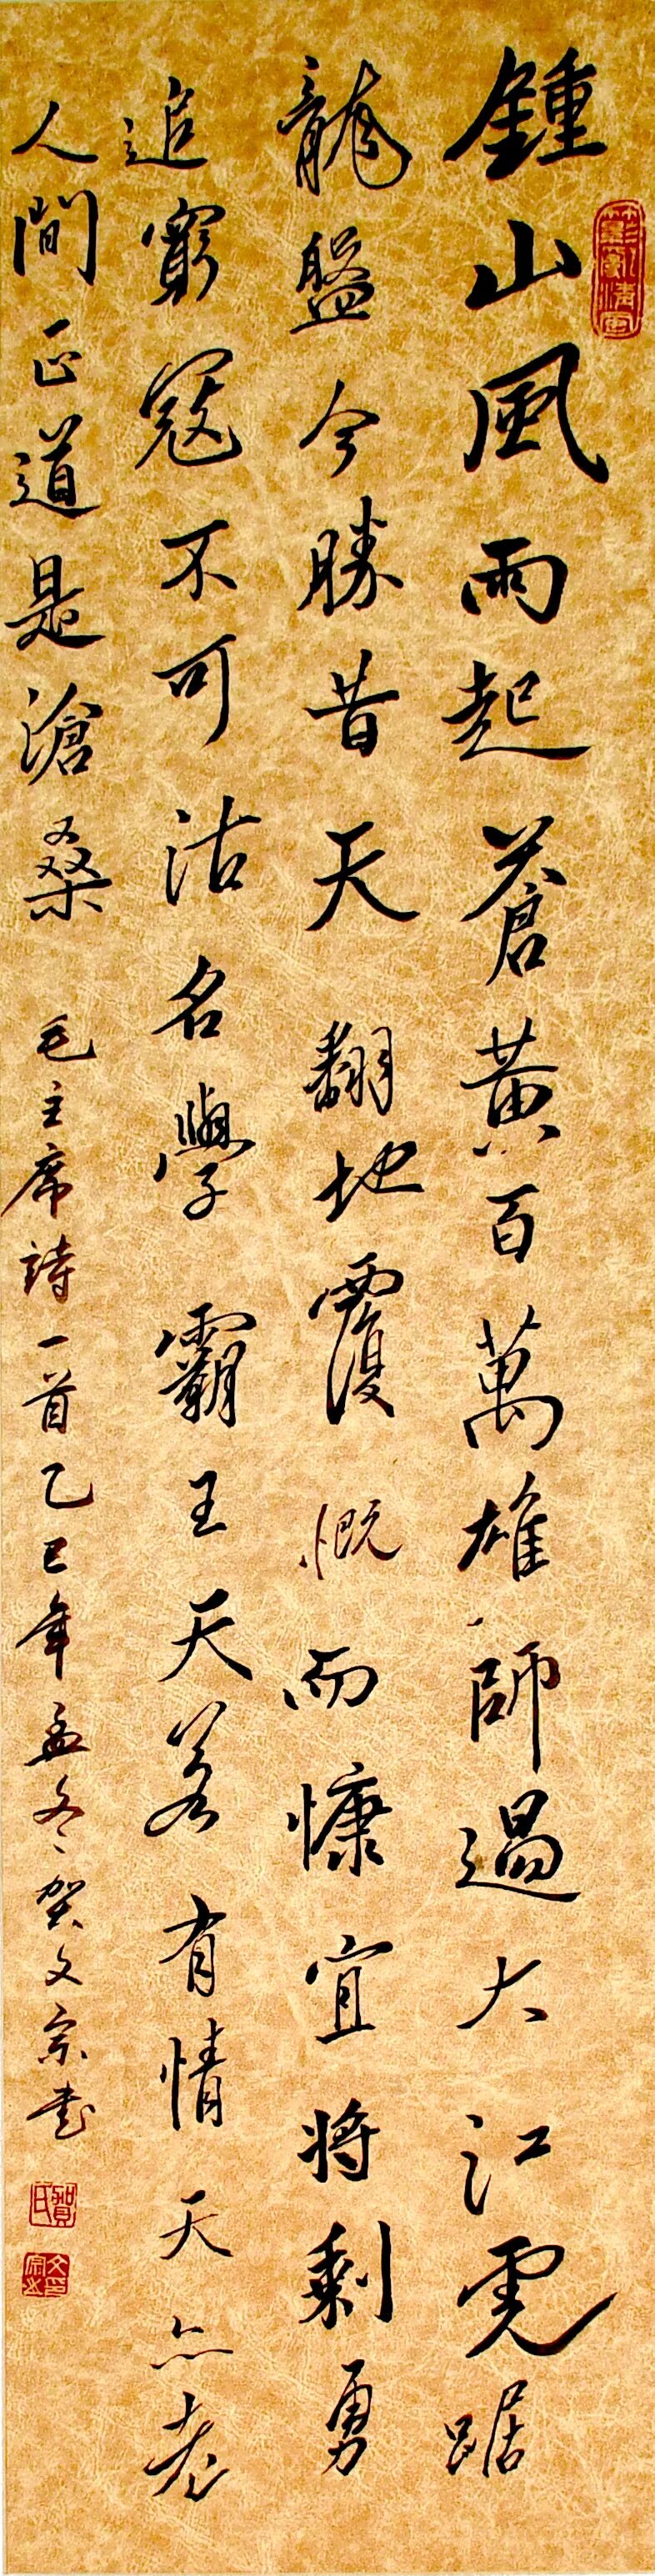 鍾山風雨起蒼黃百萬雄師過大江虎踞
龍盤今勝昔天翻地覆慨而慷宜将剩勇
追窮寇不可沽名學霸王天若有情天亦老
人間正道是滄桑 毛主席詩一首乙巳年孟冬賀文宗書
賀氏